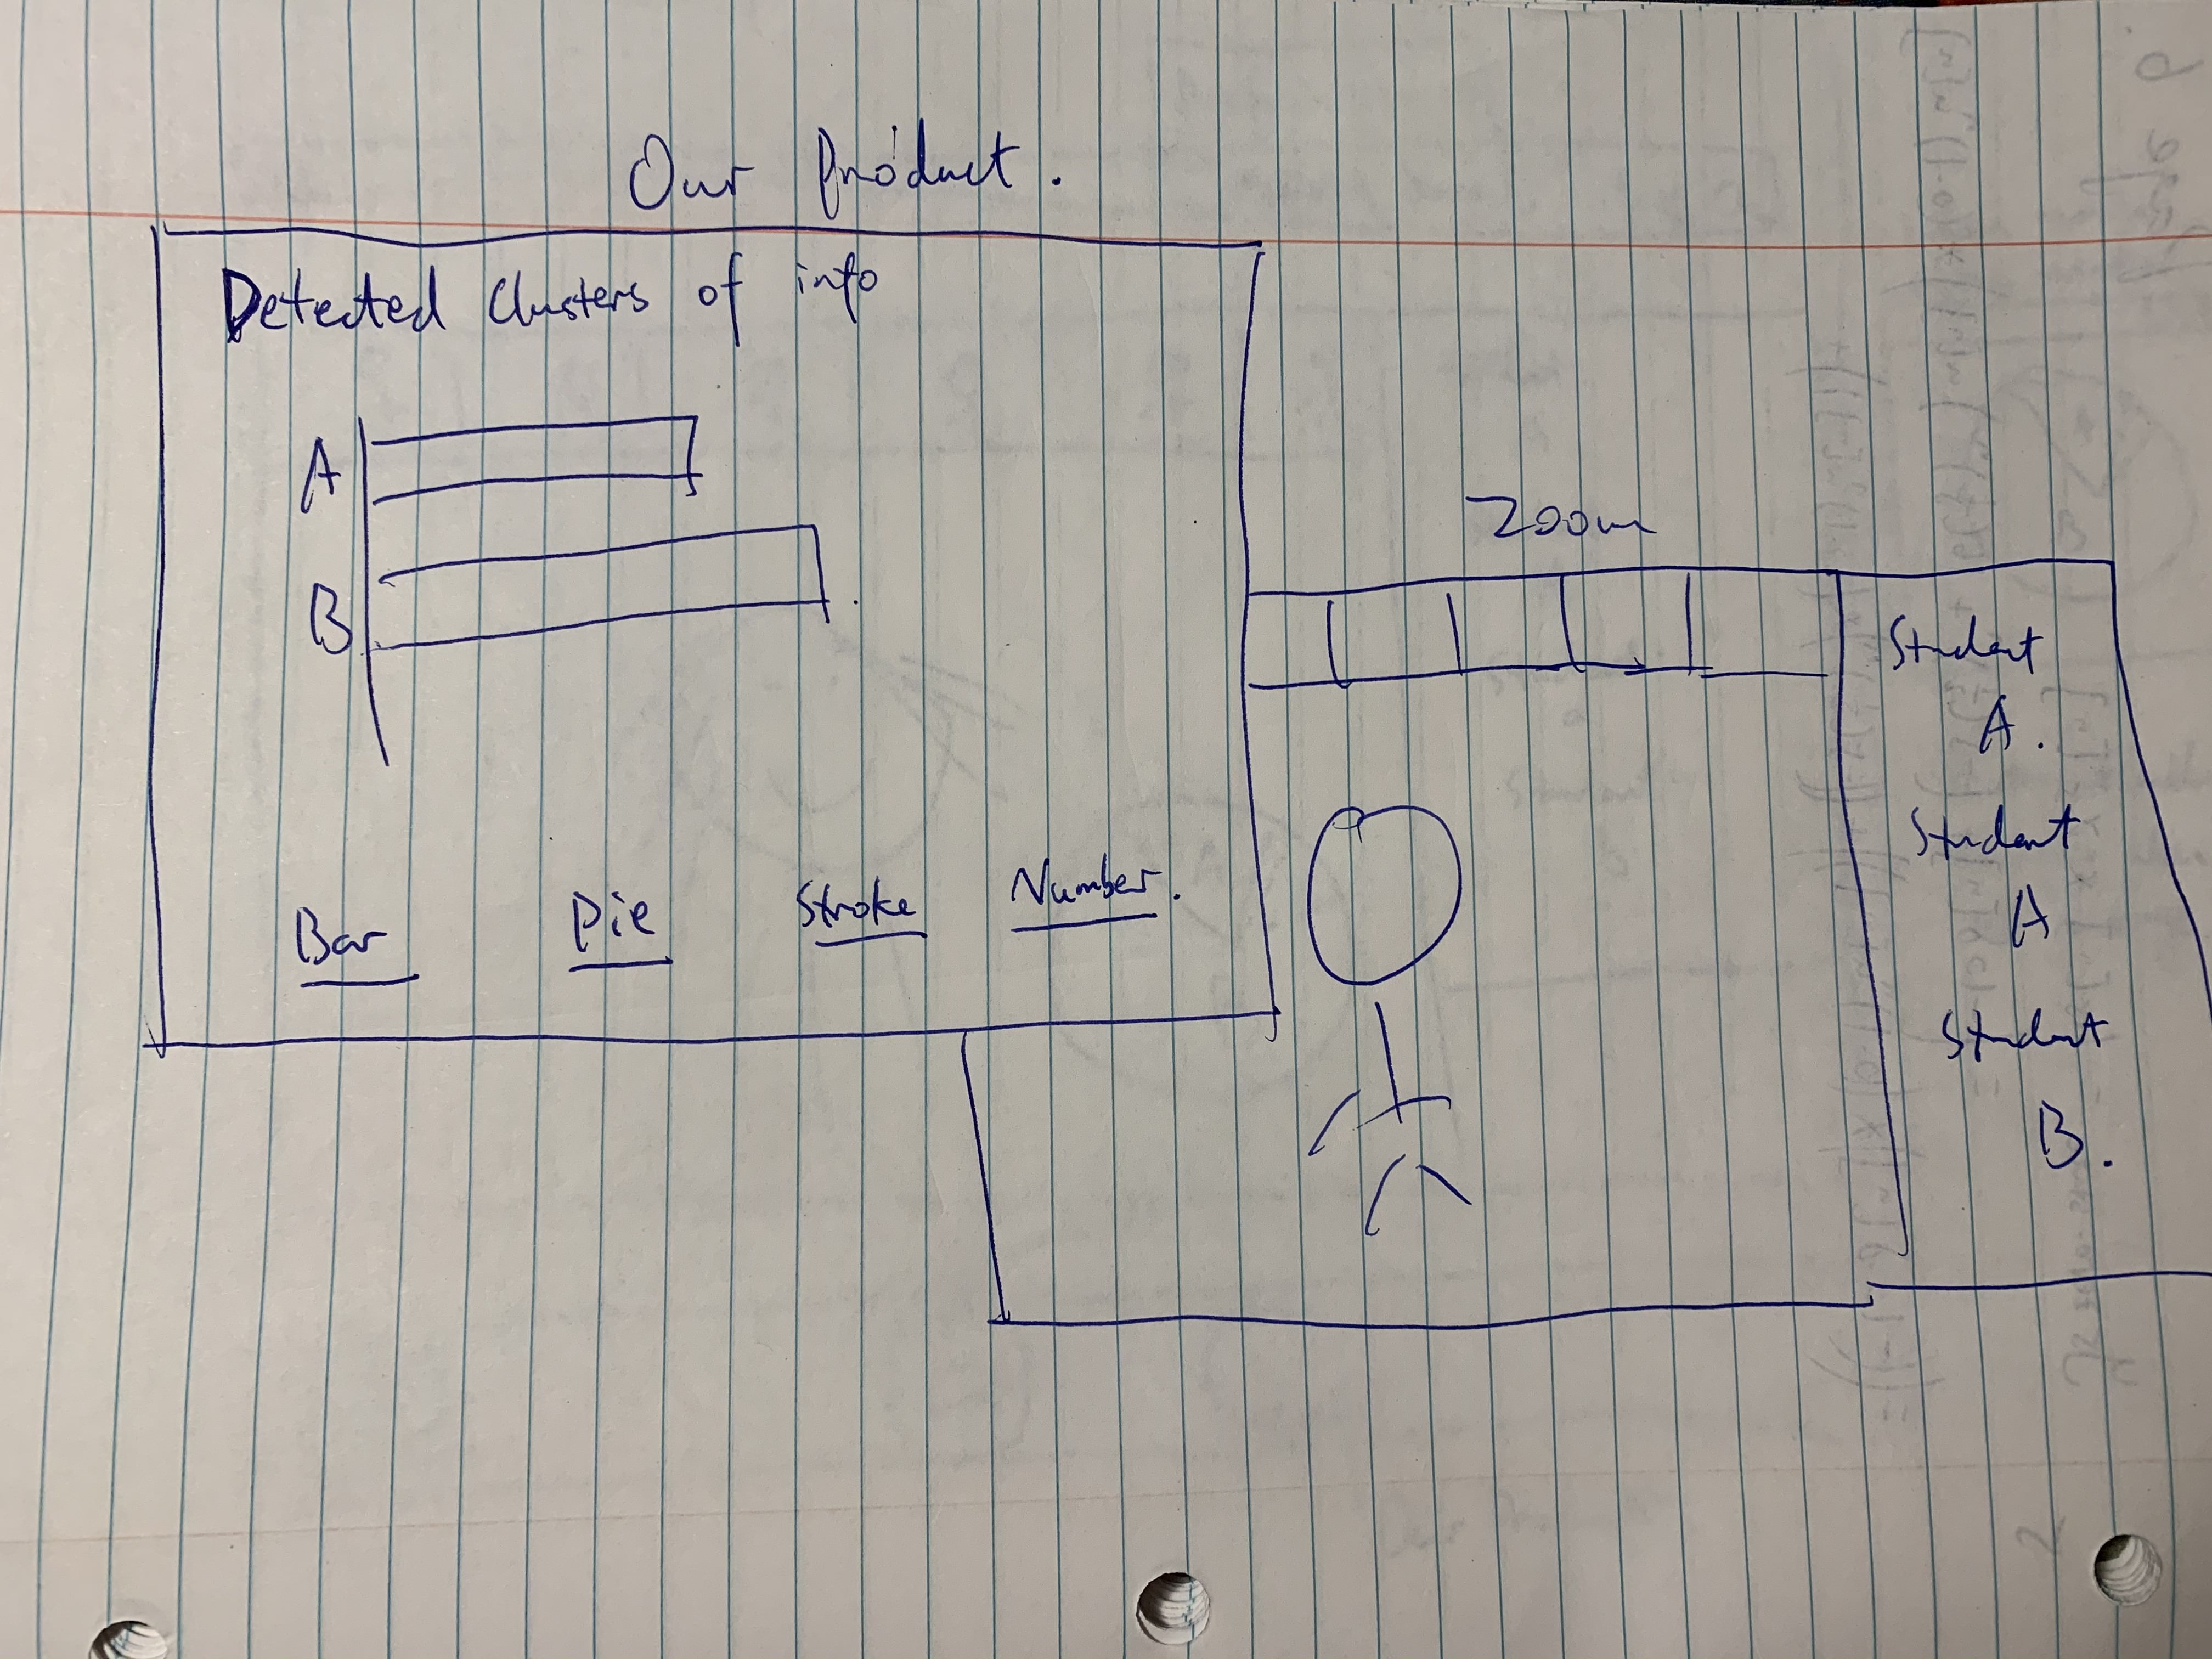 Our Product.
Detected Clusters of info
A
B
Bar Pie Stroke Number.
Zoom
Student
A.
Student
A
Student
B.